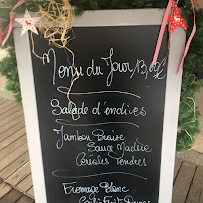 Menu du Jour 13,00€
Salade d'endives
Jambon Braisé
Sauce Madère
Céréales Tendres
Fromage Blanc